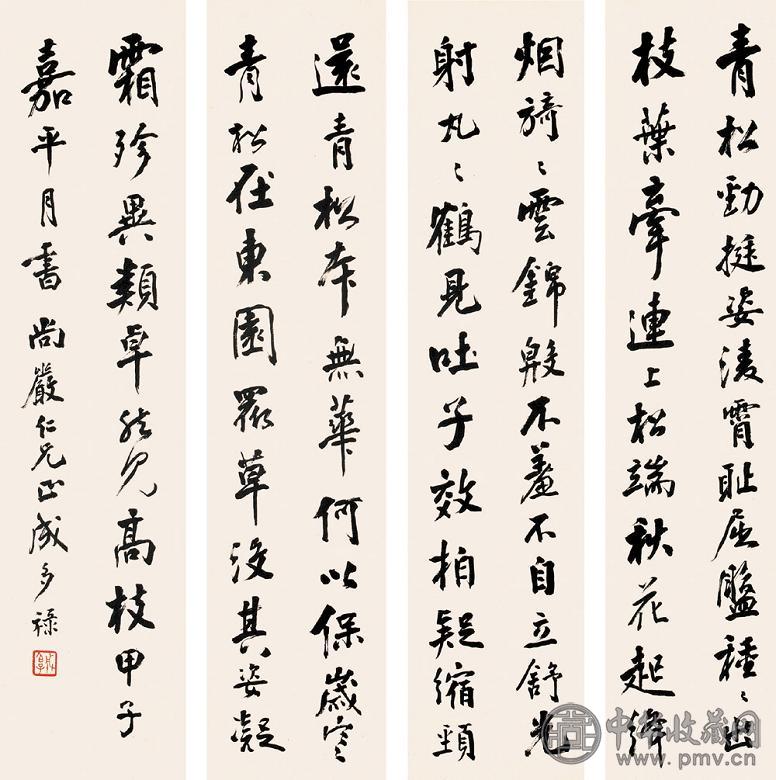 青松勁挺姿凌霄恥屈盤種〻出
枝葉牽連上松端秋花起絳
烟旖〻雲錦殷不羞不自立舒光
射丸〻鶴見吐子效柏疑縮頸
還青松本無華何以保歲寒
青松在東園眾草沒其姿凝
霜殄異類卓然見高枝甲子
嘉平月書尚嚴仁兄正成多祿
中华收藏网
www.pmv.cn